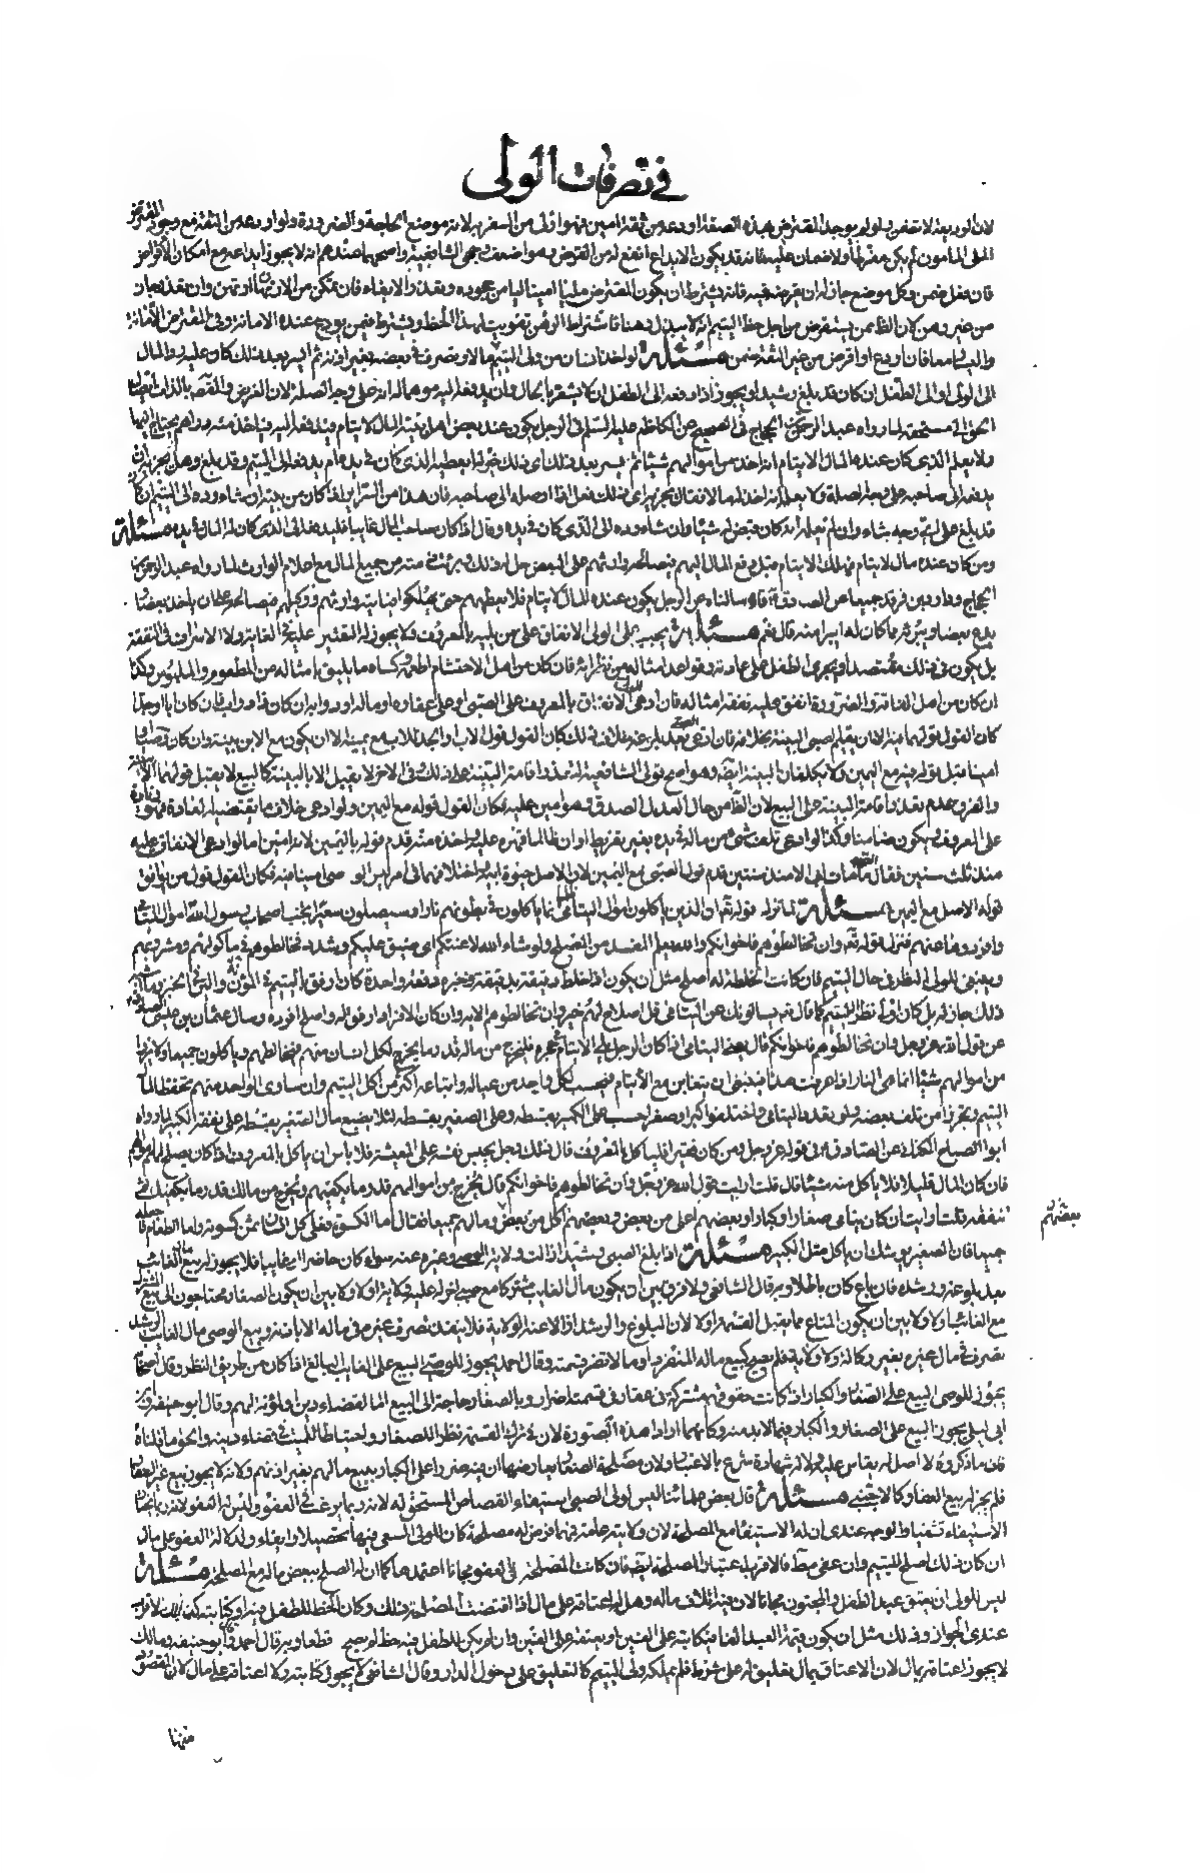 في تصرفات الولي
لان الوديعة لا تضمن ولو لم يوجد المقترض بهذه الصفة او دعه من ثقة امين فهو اولى من السفر به لانه موضع الحاجة والضرورة ولو اودعه من الثقة مع وجود المقترض
الملي المأمون لم يكن مفرطا ولا ضمان عليه فانه قد يكون الايداع انفع له من القرض وهو اضعف وجهي الشافعية واصحهما عندهم انه لا يجوز ايداعه مع امكان الاقراض
فان فعل ضمن وكل موضع جاز له ان يقرضه فيه فانه يشترط ان يكون المقترض مليا امينا ليأمن جحوده وتعذر الايفاء فان تمكن من الارتهان ارتهن وان تعذر جاز
من غير رهن لان الظاهر ممن يستقرض من اجل حظ اليتيم انه لا يبذل رهنا فاشتراط الرهن تفويت لهذا الحظ ويشترط فيمن يودع عنده الامانة وفي المقترض الامانة
واليسار معا فان اودع او اقرض من غير الثقة ضمن مسئلة لو اخذ انسان من ولي اليتيم مالا وتصرف في بعضه بغير اذنه ثم ايسر بعد ذلك كان عليه رد المال
الى الولي او الى الطفل ان كان قد بلغ رشيدا ويجوز اذا دفعه الى الطفل ان لا يشعره بالحال وان يدفعه اليه موهما له انه على وجه الصلة لان الغرض والقصد بالذات ايصال
الحق الى مستحقه لما رواه عبد الرحمن بن الحجاج في الصحيح عن الكاظم عليه السلم في الرجل يكون عند بعض اهل بيته المال لايتام فيدفعه اليه فياخذ منه دراهم يحتاج اليها
ولا يعلم الذي كان عنده المال للايتام انه اخذ من اموالهم شيئا ثم يسر بعد ذلك اي ذلك خير له ايعطيه الذي كان في يده ام يدفعه الى اليتيم وقد بلغ وهل يجزيه ان
يدفعه الى صاحبه على وجه الصلة ولا يعلمه انه اخذ له مالا فقال يجزيه اي ذلك فعل اذا اوصله الى صاحبه فان هذا من السرائر اذا كان من نيته ان شاء رده الى اليتيم ان كان
قد بلغ على اي وجه شاء وان لم يعلمه انه كان قبض له شيئا وان شاء رده الى الذي كان في يده وقال اذا كان صاحب المال غايبا فليدفعه الى الذي كان له المال في يده مسئلة
ومن كان عنده مال لايتام فهلك الايتام قبل دفع المال اليهم فيصالحه وارثهم على البعض حل له ذلك وبرئت ذمته من جميع المال مع اعلام الوارث لما رواه عبد الرحمن بن
الحجاج وداود بن فرقد جميعا عن الصادق ع قالا سألناه عن الرجل يكون عنده المال لايتام فلا يعطيهم حتى يهلكوا فياتيه وارثهم ووكيلهم فيصالحه على ان ياخذ بعضا و
يدع بعضا ويبرئه مما كان له ايبرأ منه قال نعم مسئلة يجب على الولي الانفاق على من يليه بالمعروف ولا يجوز له التقتير عليه في الغاية ولا الاسراف في النفقة
بل يكون في ذلك مقتصدا ويجري الطفل على عادته وقواعد امثاله من نظرائه فان كان من اهل الاحتشام اطعمه وكساه ما يليق بامثاله من المطعوم والملبوس وكذا
ان كان من اهل الفاقة والضرورة انفق عليه نفقة امثاله فان ادعى الولي الانفاق بالمعروف على الصبي او على عقاره او ماله او دوابه ان كان ذا دواب فان كان ابا او جدا
كان القول قولهما فيه الا ان يقيم الصبي البينة بخلافه فان ادعى الصبي بعد بلوغه خلاف ذلك كان القول قول الاب او الجد للاب مع يمينه الا ان يكون مع الابن بينة وان كان وصيا او
امينا قبل قوله فيه مع اليمين ولا يكلفان البينة ايضا وهو اصح قولي الشافعية لتعذر اقامة البينة على ذلك وفي الاخر لا يقبل الا بالبينة كالبيع لا يقبل قولهما الا ببينة
والفرق عدم تعذر اقامة البينة على البيع لان الظاهر من حال العدل الصدق وهو امين عليه فكان القول قوله مع اليمين ولو ادعى خلاف ما يقتضيه العادة فهو زيادة
على المعروف ويكون ضامنا وكذا لو ادعى تلف شيء من ماله في يده بغير تفريط او ان ظالما قهره عليه واخذه منه قدم قوله باليمين لانه امين اما لو ادعى الانفاق عليه
منذ ثلث سنين فقال الصبي ما مات ابي الا منذ سنتين قدم قول الصبي مع اليمين لان الاصل حيوة ابيه واختلافهما في امر ليس الوصي امينا فيه فكان القول قول من يوافق
قوله الاصل مع اليمين مسئلة لما نزل قوله تعالى والذين يأكلون اموال اليتامى ظلما انما يأكلون في بطونهم نارا وسيصلون سعيرا تجنب اصحاب رسول الله اموال اليتامى
وافردوها عنهم فنزل قوله تعالى وان تخالطوهم فاخوانكم والله يعلم المفسد من المصلح ولو شاء الله لاعنتكم اي ضيق عليكم وشدد فخالطوهم في مأكولهم ومشروبهم
وينبغي للولي النظر في حال اليتيم فان كانت الخلطة له اصلح مثل ان يكون اذا خلط دقيقه بدقيقه وخبزه دفعة واحدة كان ارفق باليتيم في المؤنة والين في الخبز وما اشبه
ذلك جاز له بل كان اولى نظرا لليتيم كما قال تعالى يسألونك عن اليتامى قل اصلاح لهم خير وان تخالطوهم الاية وان كان الافراد ارفق له واصلح افرده وسأل عثمان بن عيسى الصادق ع
عن قول الله عز وجل وان تخالطوهم فاخوانكم قال يعني اليتامى اذا كان الرجل يلي الايتام في حجره فليخرج من ماله قدر ما يخرج لكل انسان منهم فيخالطهم ويأكلون جميعا ولا يرزأ
من اموالهم شيئا انما هي النار اذا عرفت هذا فينبغي ان يتغابن مع الأيتام فيحسب لكل واحد من عياله واتباعه اكثر من اكل اليتيم وان ساوى الواحد منهم تحفظا لمال
اليتيم وتحرزا من تلف بعضه ولو تعدد اليتامى واختلفوا كبرا وصغرا حسب على الكبير بقسطه وعلى الصغير بقسطه لئلا يضيع مال الصغير بقسطه على نفقة الكبير لما رواه
ابو الصباح الكناني عن الصادق ع في قوله عز وجل ومن كان فقيرا فليأكل بالمعروف قال ذلك رجل يحبس نفسه على المعيشة فلا بأس ان يأكل بالمعروف اذا كان يصلح لهم اموالهم
فان كان المال قليلا فلا يأكل منه شيئا قال قلت ارايت قول الله عز وجل وان تخالطوهم فاخوانكم قال تخرج من اموالهم قدر ما يكفيهم وتخرج من مالك قدر ما يكفيك ثم
تنفقه قلت ارايت ان كان يتامى صغارا وكبارا وبعضهم اعلى من بعض وبعضهم اكل من بعض ومالهم جميعا فقال اما الكسوة فعلى كل انسان ثمن كسوته واما الطعام فاجعله
بعضهم
جميعا فان الصغير يوشك ان يأكل مثل الكبير مسئلة اذا بلغ الصبي رشيدا زالت ولاية الوصي وغيره عنه سواء كان حاضرا او غايبا فلا يجوز له بيع مال الغايب
بعد بلوغه ورشده فان باع كان باطلا وبه قال الشافعي ولا فرق بين ان يكون مال الغايب مشتركا مع صبي اخر له عليه ولاية او لا ولا بين ان يكون الصغار محتاجون الى بيع المشترك
مع الغايب او لا ولا بين ان يكون المتاع مما يقبل القسمة او لا لان البلوغ والرشد ازالا عنه الولاية فلا ينفذ تصرف غيره في ماله الا باذنه وبيع الوصي مال الغايب الرشيد
تصرف في مال غيره بغير وكالة ولا ولاية فلم يصح كبيع ماله المنفرد او ما لا تضر قسمته وقال احمد يجوز للوصي البيع على الغايب البالغ اذا كان من طريق النظر وقال اصحابه
يجوز للوصي البيع على الصغار والكبار اذا كانت حقوقهم مشتركة في عقار في قسمته اضرار وبالصغار حاجة الى البيع اما لقضاء دين او لمؤنة لهم وقال ابو حنيفة وابن
ابي ليلى يجوز البيع على الصغار والكبار فيما لا بد منه وكانهما ارادا هذه الصورة لان في ترك القسمة نظرا للصغار واحتياطا للميت في قضاء دينه والحق ما قلناه
فان ما ذكروه لا اصل له يقاس عليه ولا له شهادة شرع بالاعتبار ولان مصلحة الصغار يعارضها ان فيه ضررا على الكبار ببيع مالهم بغير اذنهم ولانه لا يجوز بيع غير العقار
فلم يجز له بيع العقار كالاجنبي مسئلة قال بعض علمائنا ليس لولي الصبي استيفاء القصاص المستحق له لانه ربما يرغب في العفو وليس له العفو لانه ربما يختار
الاستيفاء تشفيا والوجه عندي ان له الاستيفاء مع المصلحة لان ولايته عامة فيما فرض له مصلحة كان للولي السعي فيها تحصيلا وايفاء وله كذا له العفو على مال
ان كان ذلك اصلح لليتيم وان عفى مطلقا فالاقرب اعتبار المصلحة ايضا فان كانت المصلحة في العفو مجانا اعتمدها كما ان له الصلح ببعض ماله مع المصلحة مسئلة
ليس للولي ان يعتق عبد الطفل والمجنون مجانا لان فيه اتلاف ماله وهل له اعتاقه على مال اذا اقتضت المصلحة ذلك وكان الحظ للطفل فيه او كتابته كذلك الاقرب
عندي الجواز وذلك مثل ان يكون قيمة العبد الفا فيكاتبه على الفين او يعتقه على الفين وان لم يكن للطفل فيه حظ لم يصح قطعا وبه قال احمد وقال ابو حنيفة ومالك
لا يجوز اعتاقه بمال لان الاعتاق بمال تعليق له على شرط فلم يملكه ولي اليتيم كالتعليق على دخول الدار وقال الشافعي لا يجوز كتابته ولا اعتاقه على مال لان المقصود
منهما